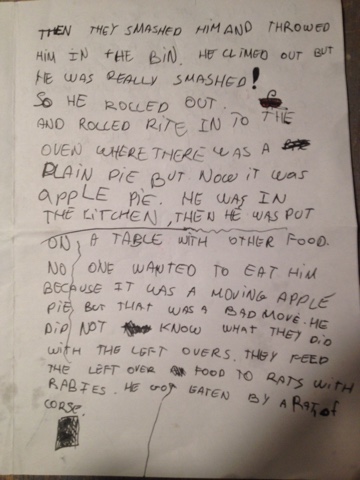 THEN THEY SMASHED HIM AND THROWED
HIM IN THE BIN. HE CLIMED OUT BUT
HE WAS REALLY SMASHED!
SO HE ROLLED OUT.
AND ROLLED RITE IN TO THE
OVEN WHERE THERE WAS A
PLAIN PIE BUT NOW IT WAS
APPLE PIE. HE WAS IN
THE KITCHEN, THEN HE WAS PUT
ON A TABLE WITH OTHER FOOD.
NO ONE WANTED TO EAT HIM
BECAUSE IT WAS A MOVING APPLE
PIE BUT THAT WAS A BAD MOVE. HE
DID NOT KNOW WHAT THEY DID
WITH THE LEFT OVERS. THEY FEED
THE LEFT OVER FOOD TO RATS WITH
RABIES. HE GOT EATEN BY A RAT, OF
CORSE.